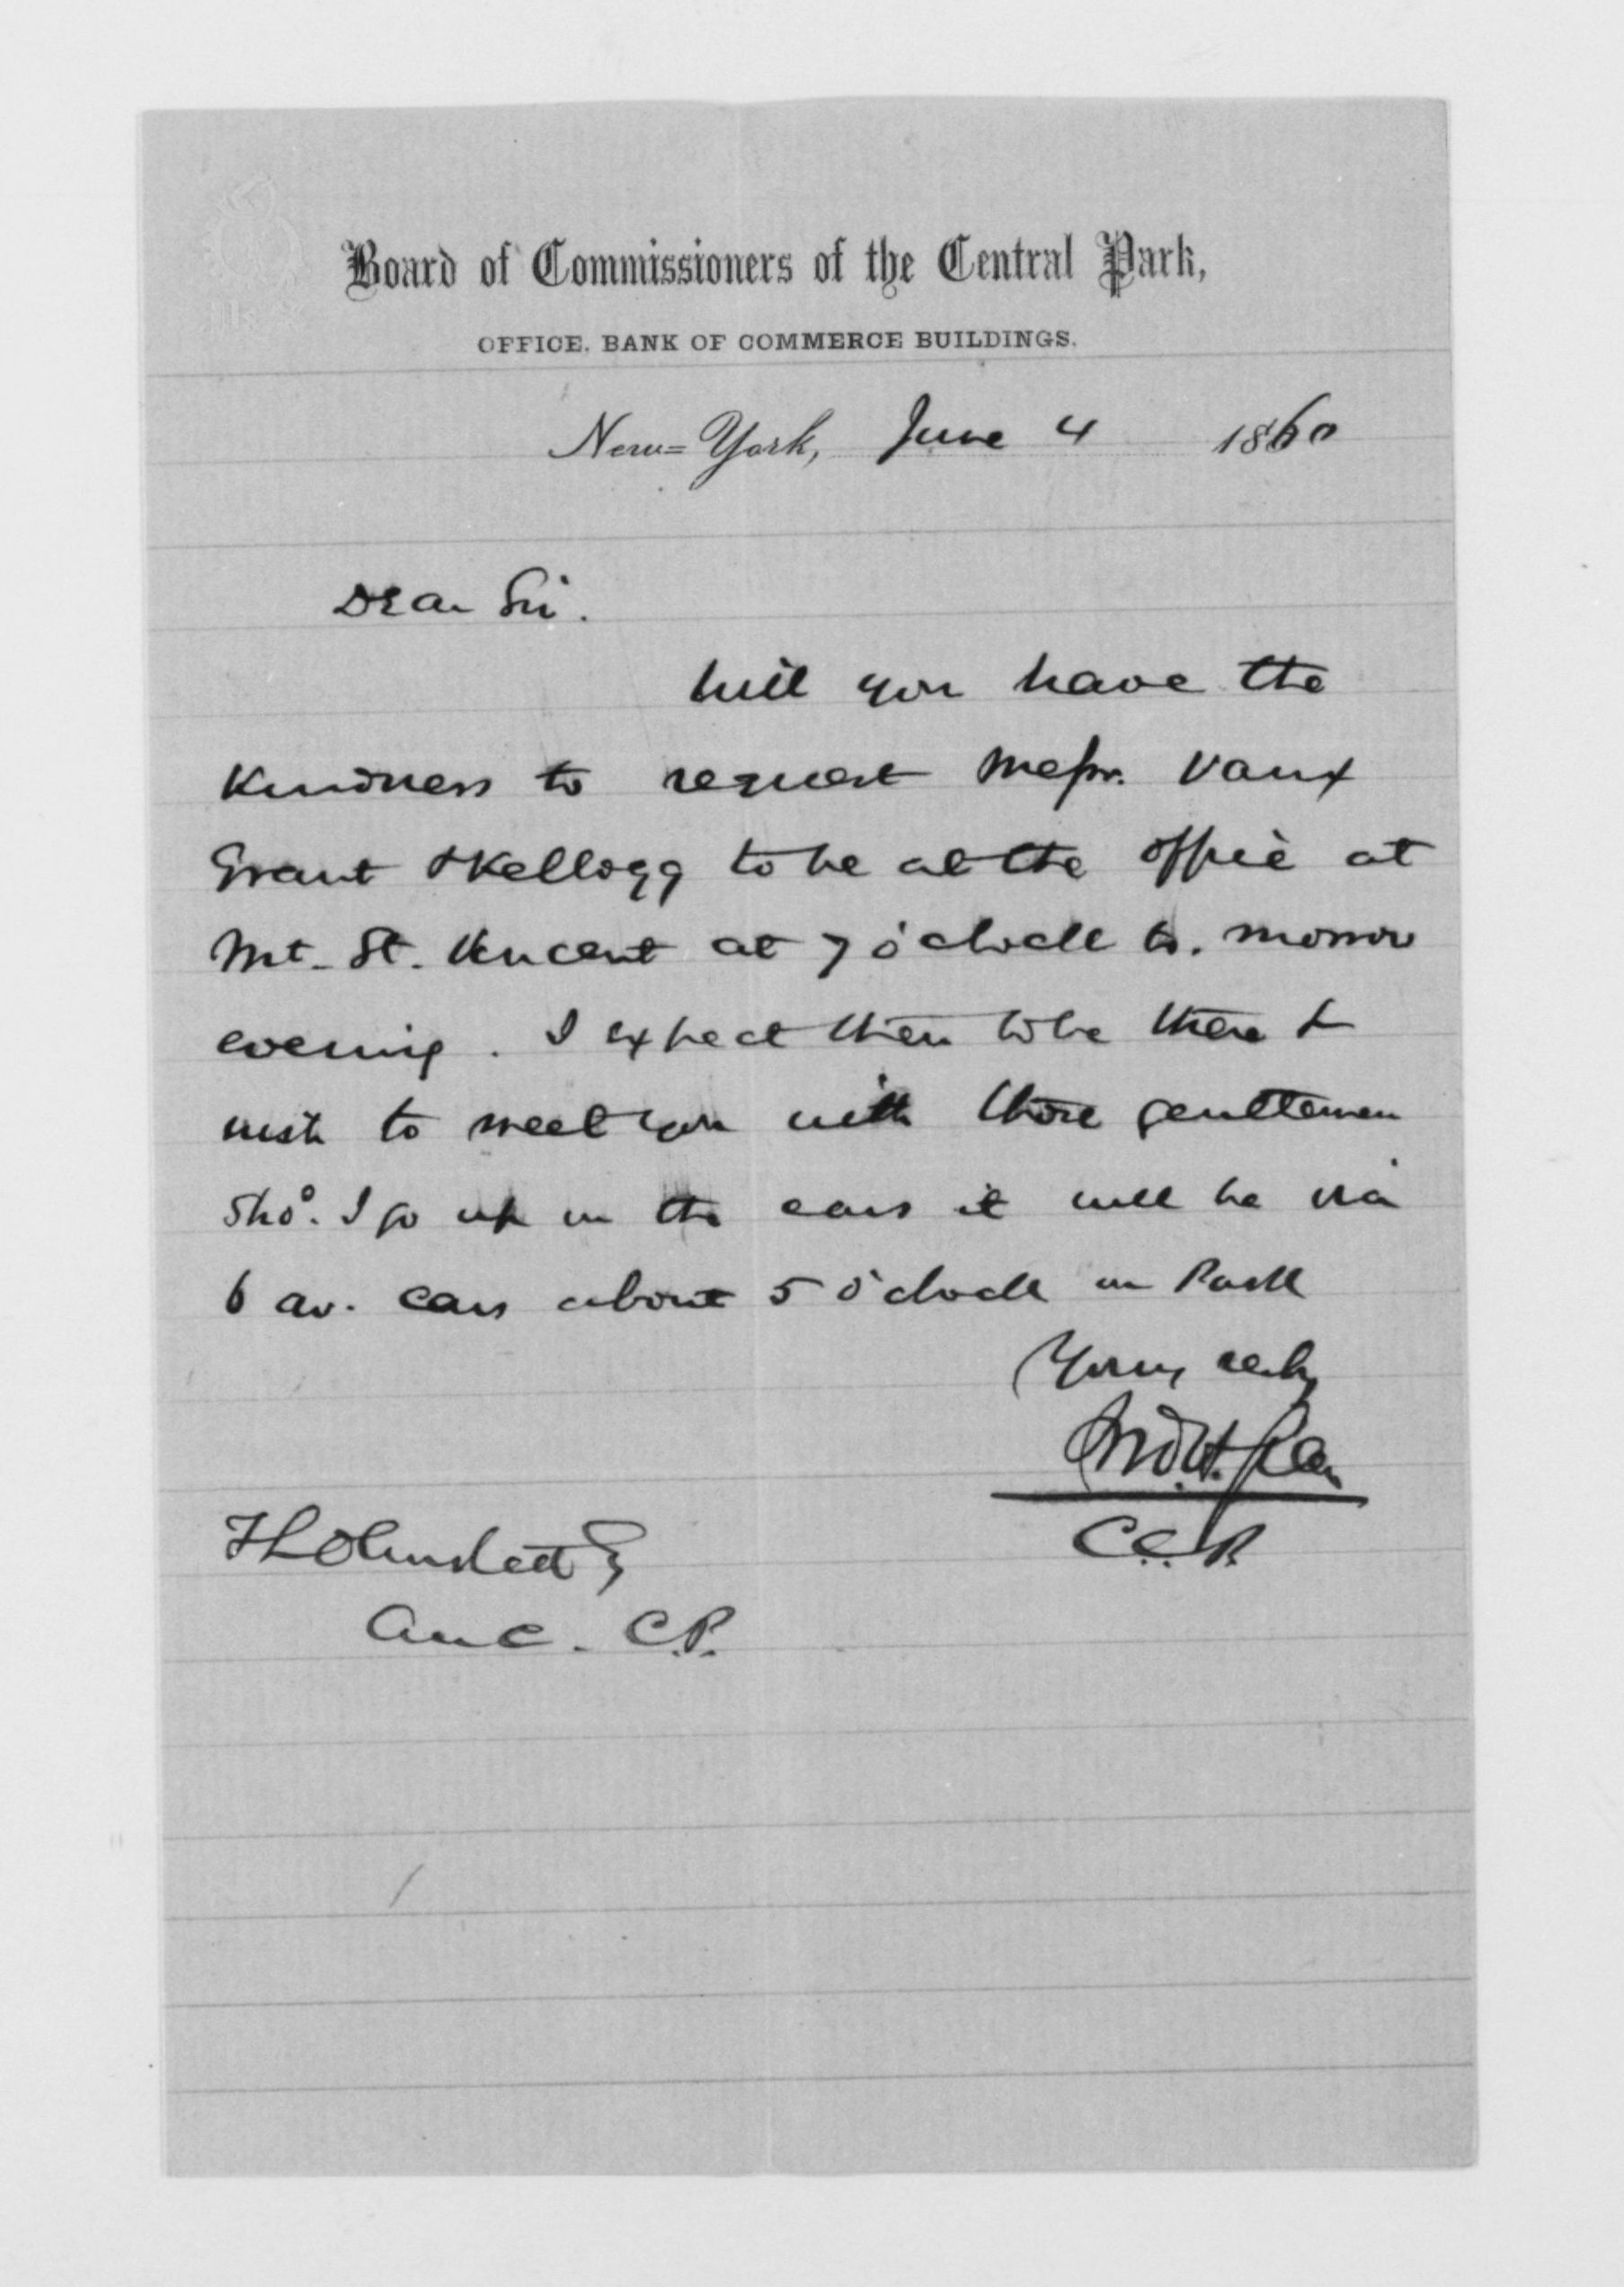 Board of Commissioners of the Central Park,
OFFICE. BANK OF COMMERCE BUILDINGS.
New=York, June 4 1860
Dear Sir.
Will you have the
kindness to request Messrs. Vaux
Grant & Kellogg to be at the office at
Mt. St. Vincent at 7 o'clock to. morrow
evening. I expect then to be there &
wish to meet you with those gentlemen
Sho. I go up in the cars it will be via
6 av. cars about 5 o'clock in Park
Yours, resly
And. H. Green
C.C.P.
F L Olmsted Esq
C.P.